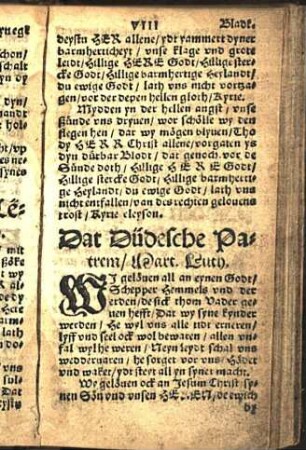 VIII Bladt.
deystu HER allene / ydt yammert dyner
barmherticheyt / vnse klage vnd grote
leidt / Hillige HERE Godt / Hillige ster-
cke Godt / Hillige barmhertige Heylandt /
du ewige Godt / lath vns nicht vortza-
gen / vor der depen hellen gloth / Kyrie.
Mydden yn der hellen angst / vnse
sünde vns dryuen / wor schölle wy den
flegen hen / dar wy mögen blyuen / Tho
dy HERR Christ allene / vorgaten ys
dyn dürbar Blodt / dat genoch vor de
Sünde doth / Hillige HERE Godt /
Hillige stercke Godt / Hillige barmherti-
ge Heylandt / du ewige Godt / lath vns
nicht entfallen / van des rechten gelouens
trost / Kyrie eleyson.
Dat Düdesche Pa-
trem / Mart. Luth.
WJ gelöuen all an eynen Godt /
Schepper Hemmels vnd der
erden / de sick thom Vader ge-
uen hefft / Dat wy syne kynder
werden / He wyl vns alle tydt erneren /
lyff vnd seel ock wol bewaren / allen vn-
fal wyl he weren / Neyn leydt schal vns
weddervaren / he sorget vor vns / Hödet
vnd waket / ydt steyt all yn syner macht.
We gelöuen ock an Jesum Christ / sy-
nen Sön vnd vnsen HEREN / de ewich
by